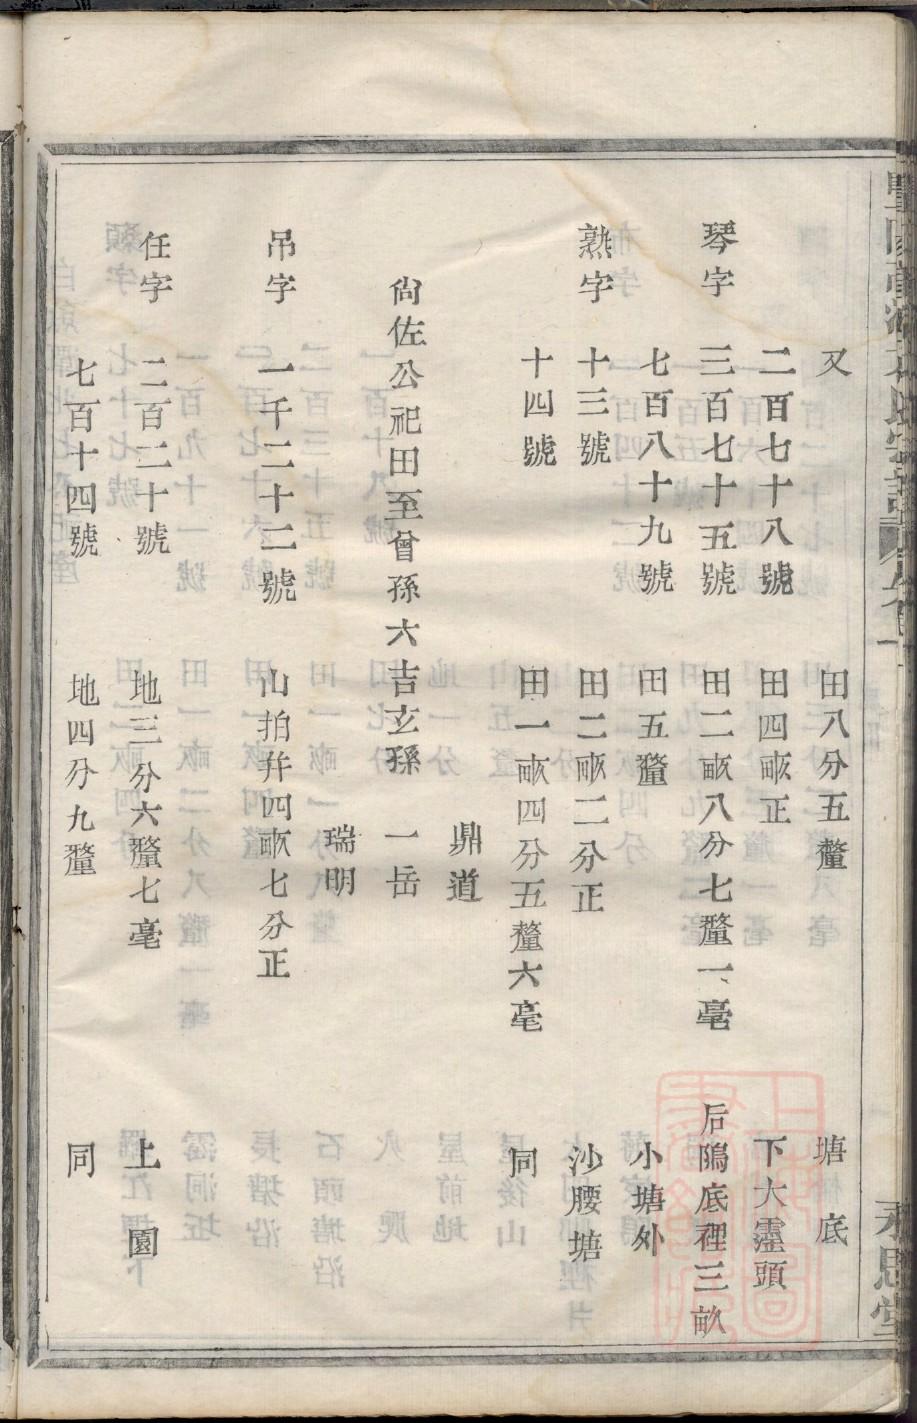 又 田八分五釐 塘底
二百七十八號 田四畝正 下大𤅀頭
琴字 三百七十五號 田二畝八分七釐一毫 后隖底裡三畝
七百八十九號 田五釐 小塘外
熟字 十三號 田二畝二分正 沙腰塘
十四號 田一畝四分五釐六毫 同
鼎道
尙佐公祀田至曾孫六吉玄孫 一岳
瑞明
吊字 一千二十二號 山拍幷四畝七分正
任字 二百二十號 地三分六釐七毫 上園
七百十四號 地四分九釐 同
永思堂